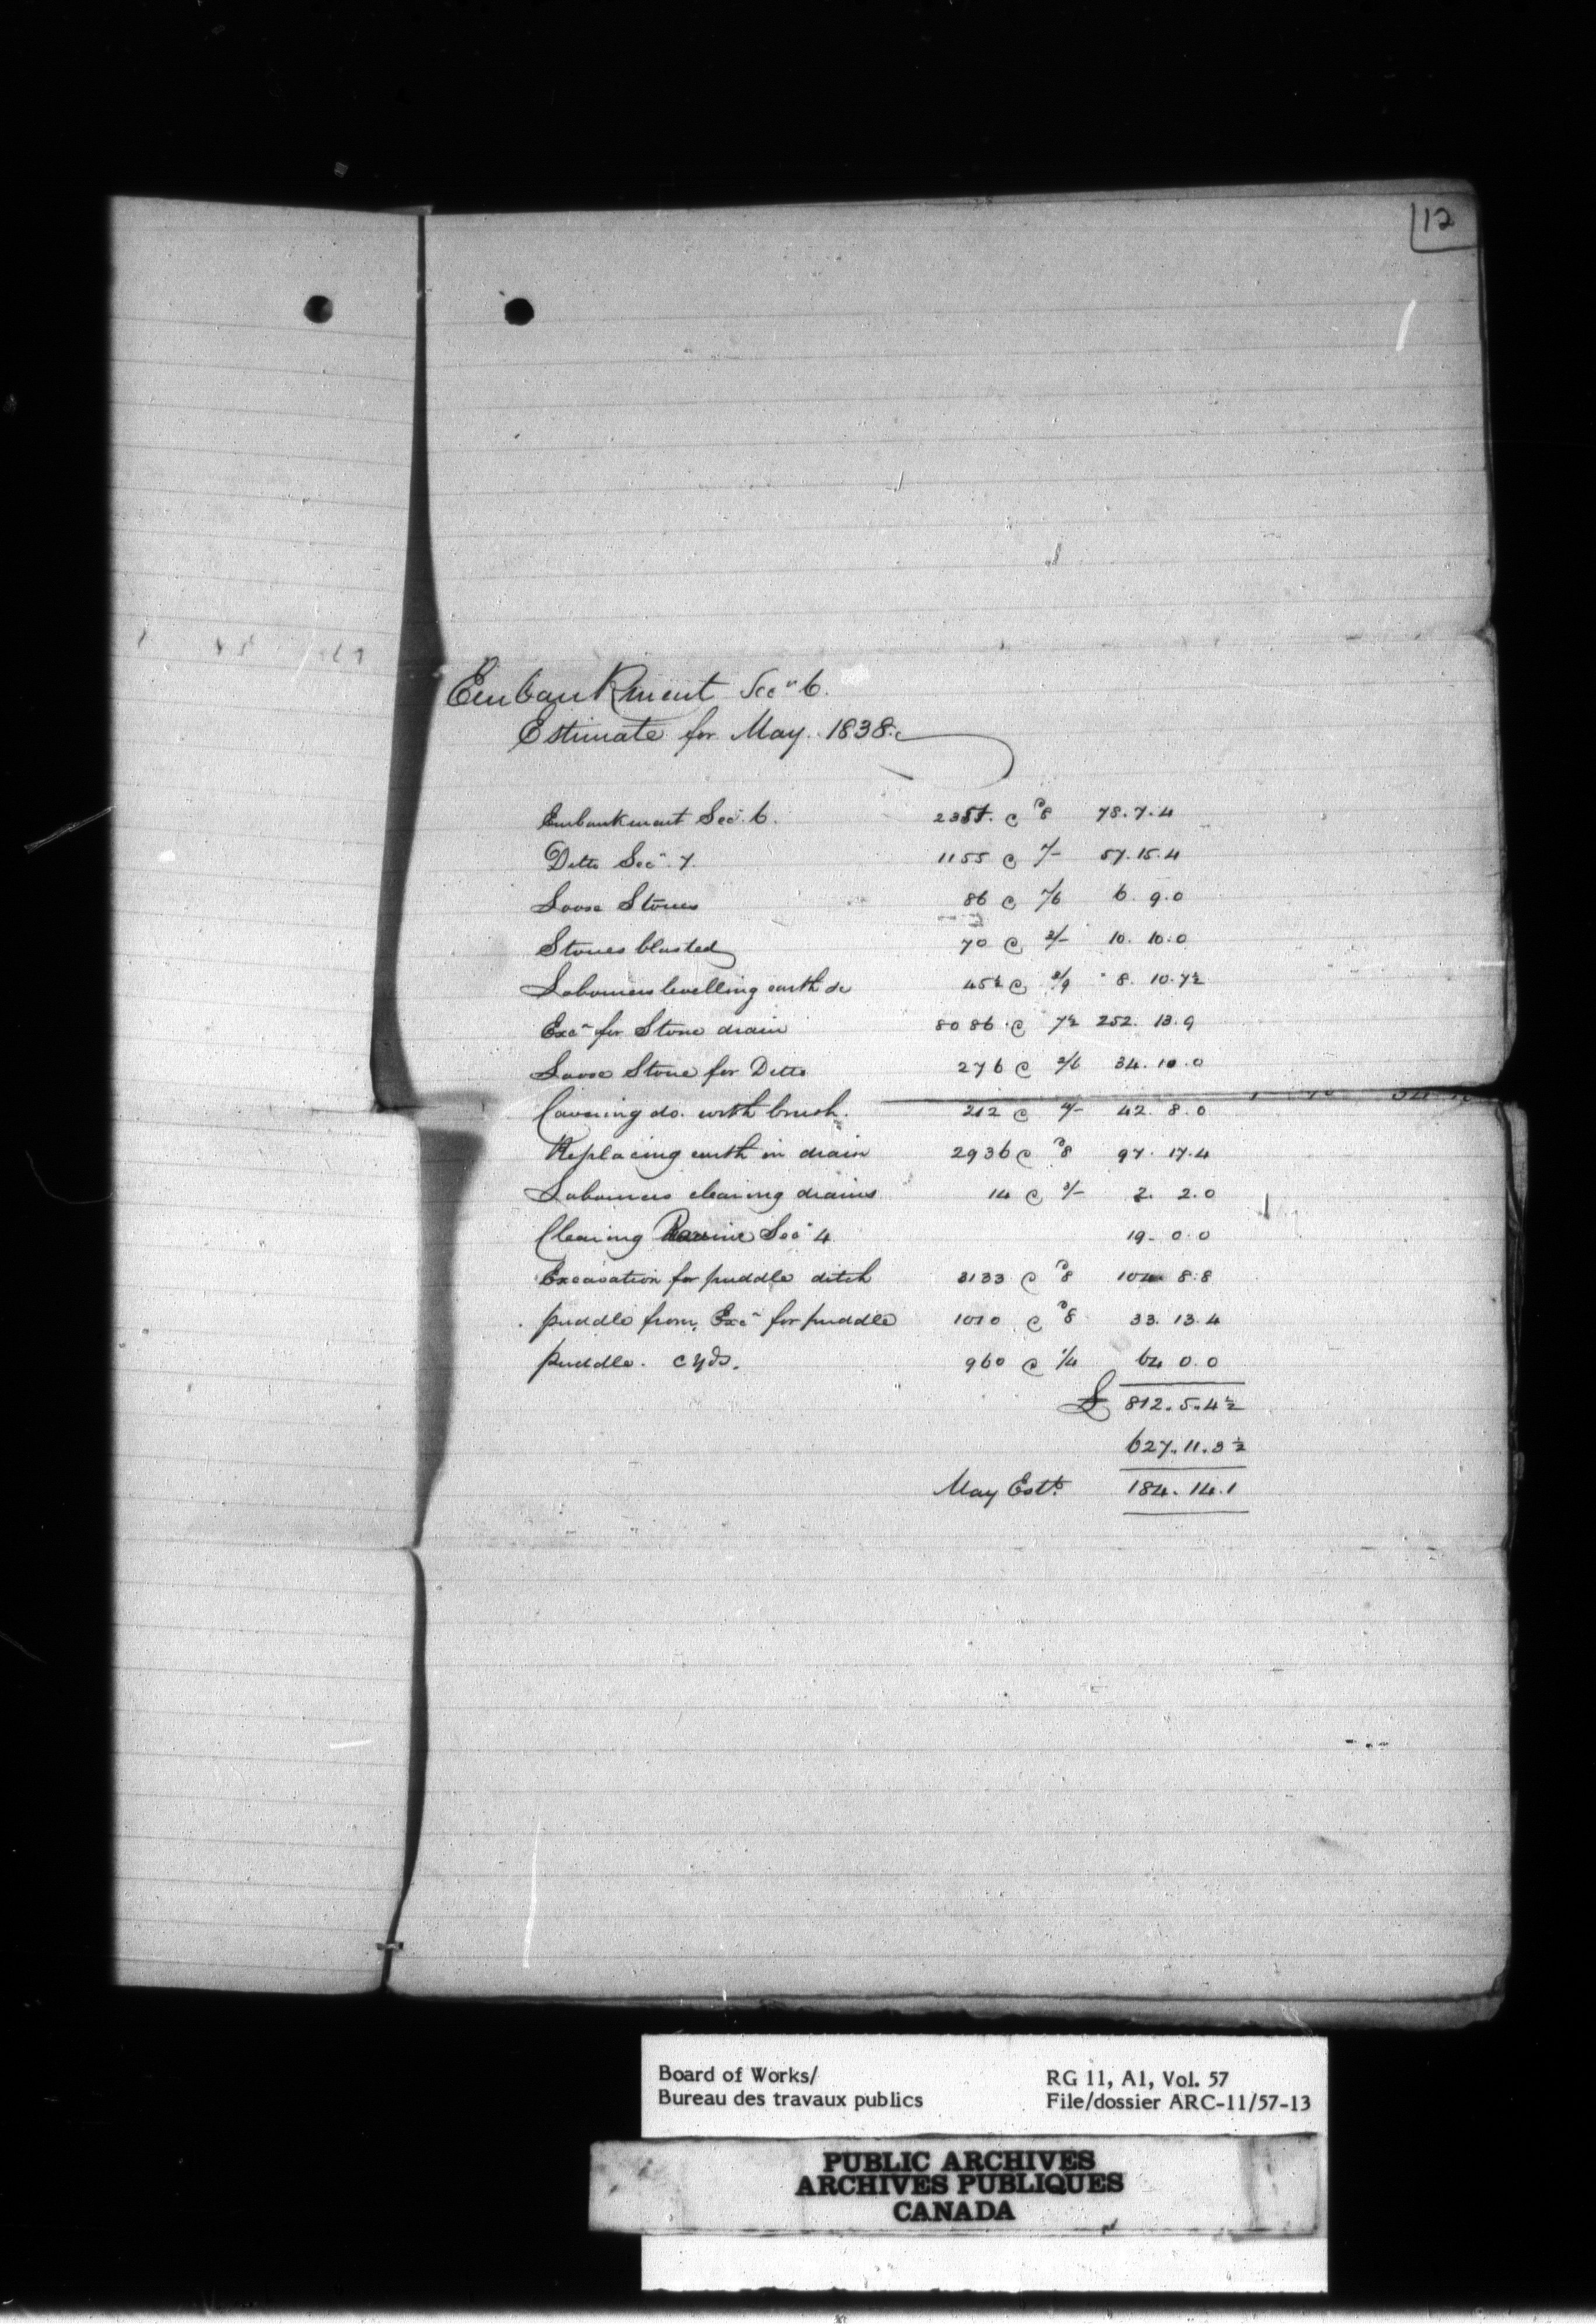 12
Embankment Secn 6.
Estimate for May. 1838.
Embankment Sec. 6. 2351. @ 8 78.7.4
Ditto Secn. 7. 1155 @ 1/- 57.15.4
Loose Stones 86 @ 1/6 6.9.0
Stones blasted 70 @ 3/- 10.10.0
Labourers levelling earth &c 45½ @ 3/9 8.10.7½
Excn for Stone drain 8086 @ 7½ 252.13.9
Loose Stone for Ditto 276 @ 2/6 34.10.0
Covering do. with brush. 212 @ 4/- 42.8.0
Replacing earth in drain 2936 @ 8 97.17.4
Labourers clearing drains 14 @ 3/- 2.2.0
Clearing Ravine Secn 4 19.0.0
Excavation for puddle ditch 3133 @ 8 104.8.8
puddle from Excn for puddle 1010 @ 8 33.13.4
puddle. c yds. 960 @ 1/4 64.0.0
£ 812.5.4½
627.11.3½
May Estt. 184.14.1
Board of Works/
Bureau des travaux publics
RG 11, A1, Vol. 57
File/dossier ARC-11/57-13
PUBLIC ARCHIVES
ARCHIVES PUBLIQUES
CANADA